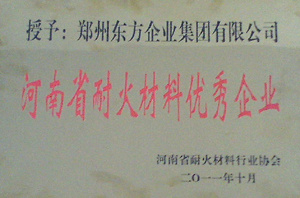 授予：郑州东方企业集团有限公司
河南省耐火材料优秀企业
河南省耐火材料行业协会
二〇一一年十月